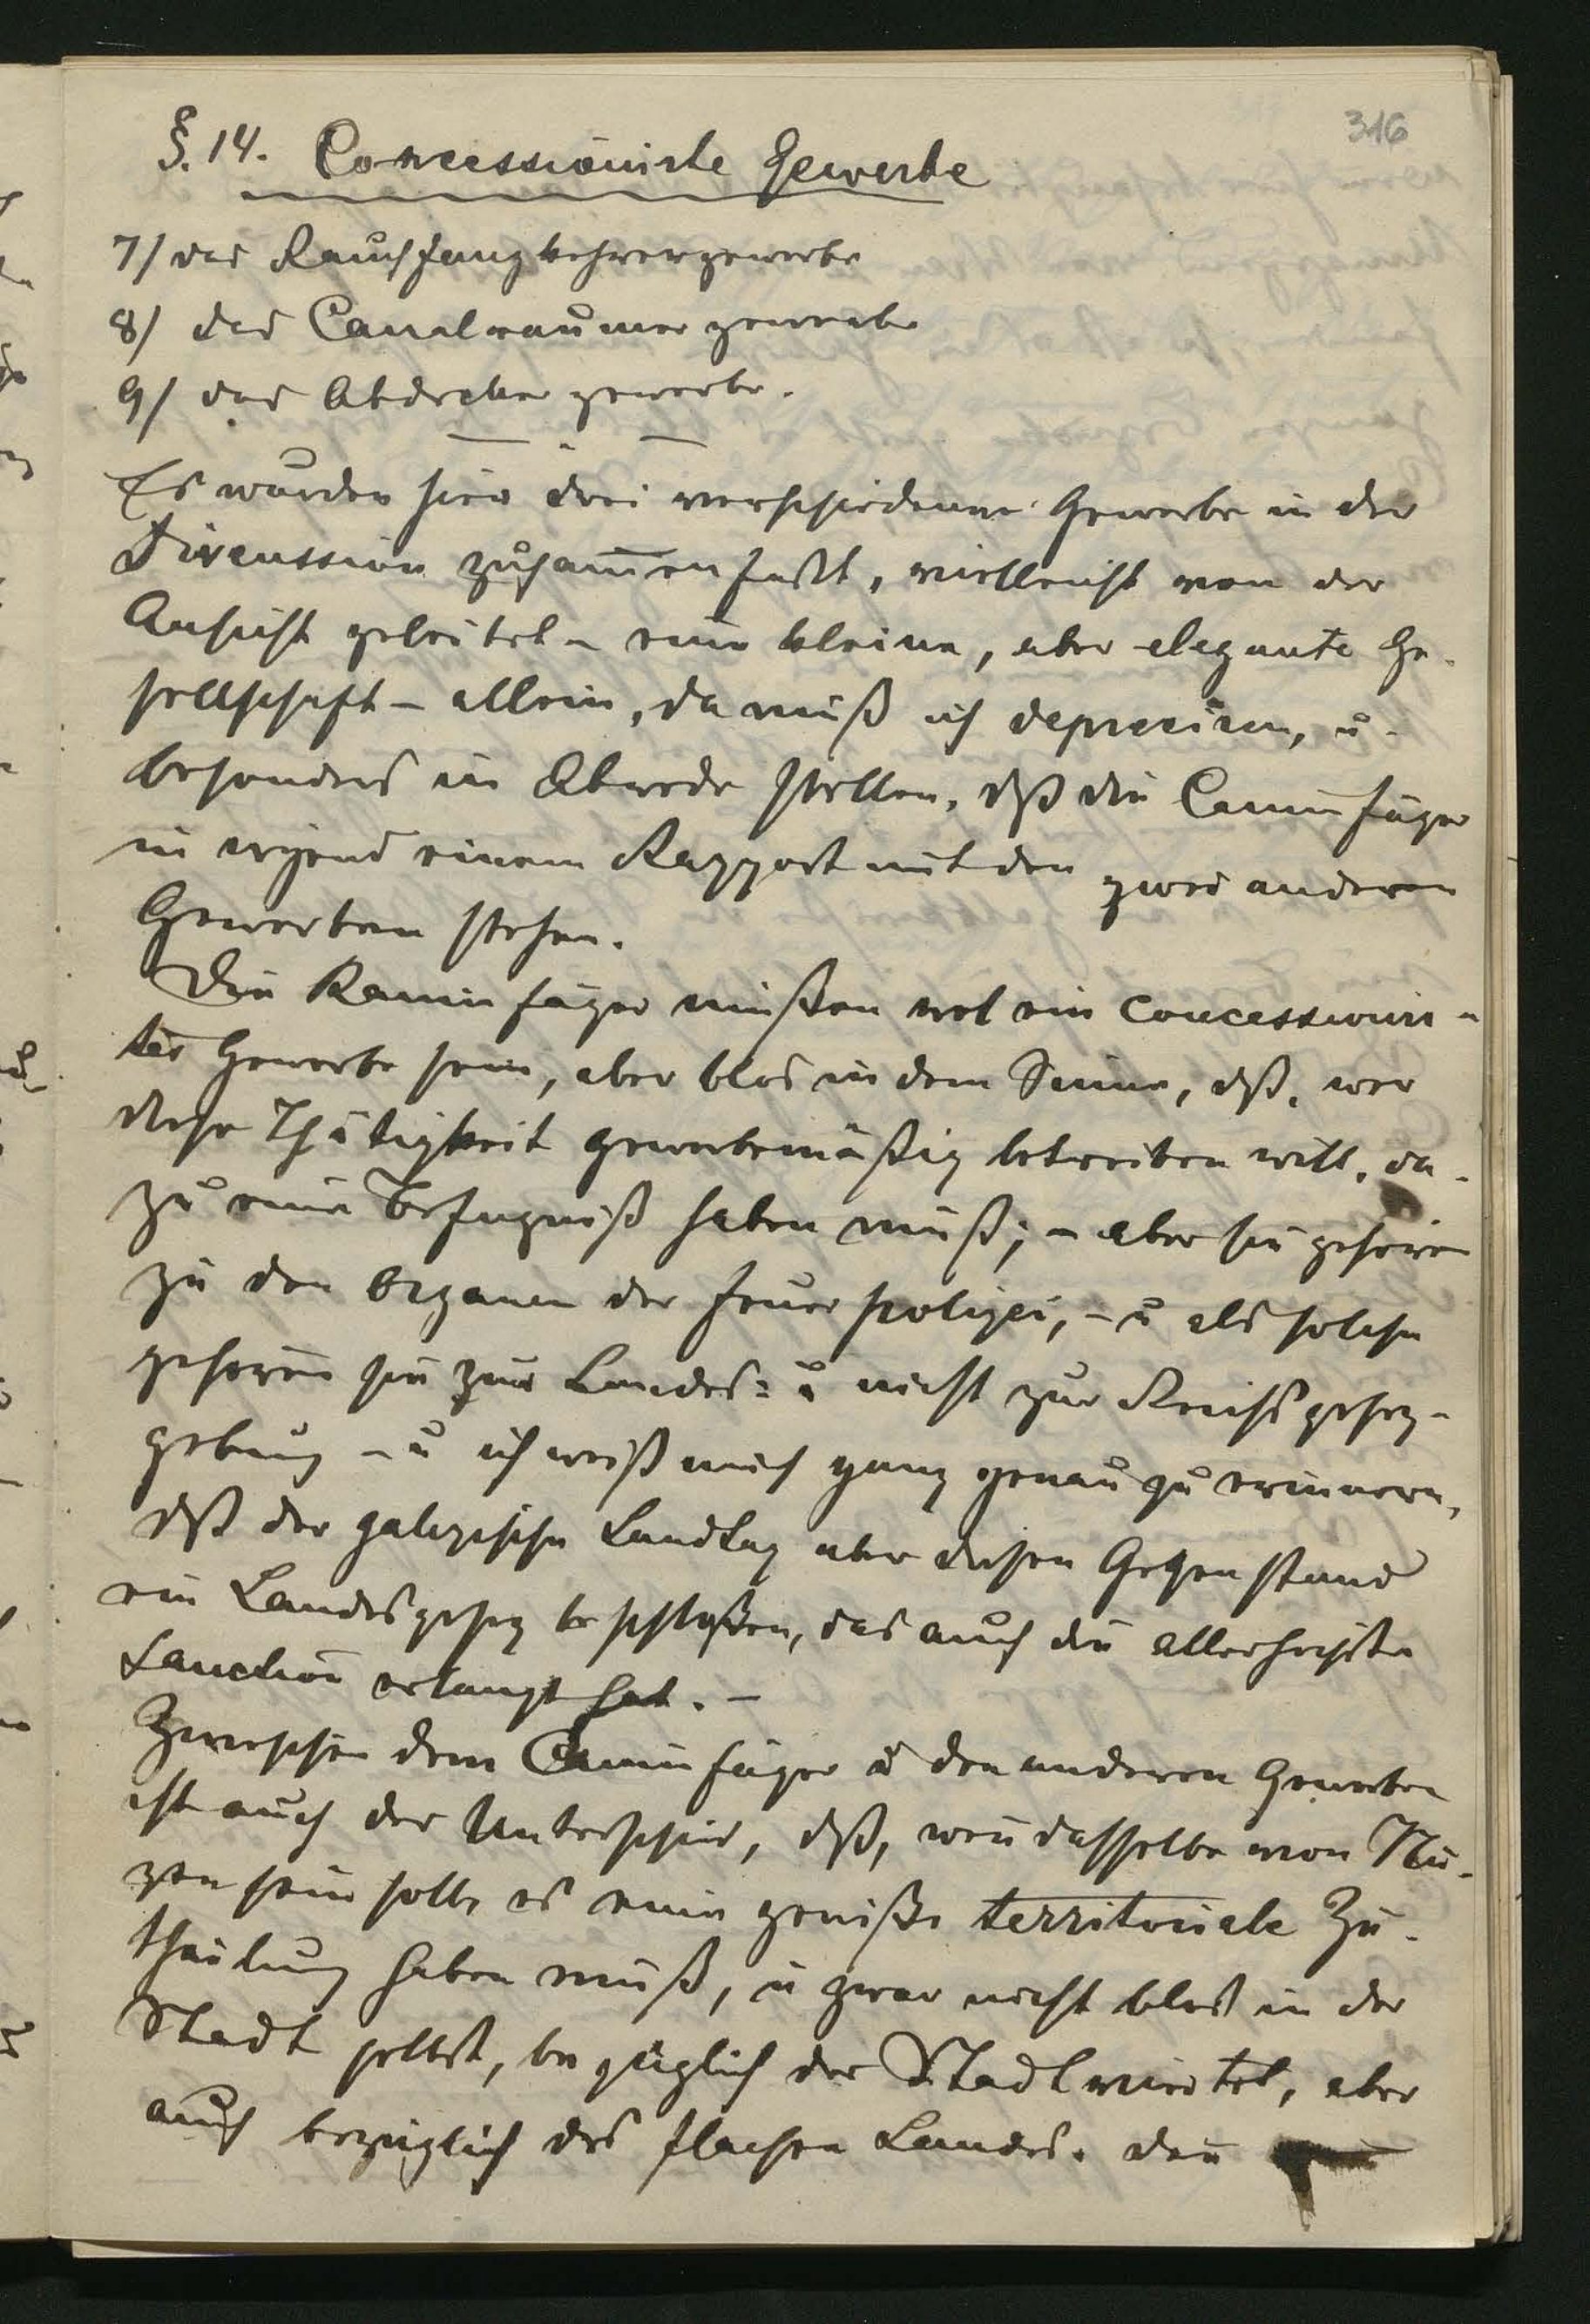 316
§. 14. Concessionirte Gewerbe
7/ das Rauchfangkehrergewerbe
8/ das Canalraumergewerbe
9/ das Abdeckergewerbe.
Es wurden hier drei verschiedene Gewerbe in der
Discussion zusam̅enfaßt, vielleicht von der
Ansicht geleitet – eine kleine, aber elegante Ge-
sellschaft – allein, da muß ich depreciren, u.
besonders in Abrede stellen, dß die Caminfäger
in irgend einem Rapport mit den zwei anderen
Gewerben stehen.
Die Kaminfäger müßen wol ein concessionir-
tes Gewerbe sein, aber blos in dem Sinne, dß, wer
diese Thätigkeit gewerbemäßig betreiben will, da-
zu eine Befugniß haben muß; – aber sie gehören
zu den Organen der Feuerpolizei, – u als solche
gehören sie zur Landes= u nicht zur Reichsgesez-
gebung – u ich weiß mich ganz genau zu erinnern,
dß der galizische Landtag über diesen Gegenstand
ein Landesgesez beschloßen, das auch die allerhöchste
Sanction erlangt hat. –
Zwischen dem Caminfäger u den anderen Gewerben
ist auch der Unterschied, dß, wen̅ dasselbe von Nu-
zen sein solle es eine gewiße territoriale Zu-
theilung haben muß, u zwar nicht blos in der
Stadt selbst, bezüglich der Stadtviertel, aber
auch bezüglich des flachen Landes. Den̅